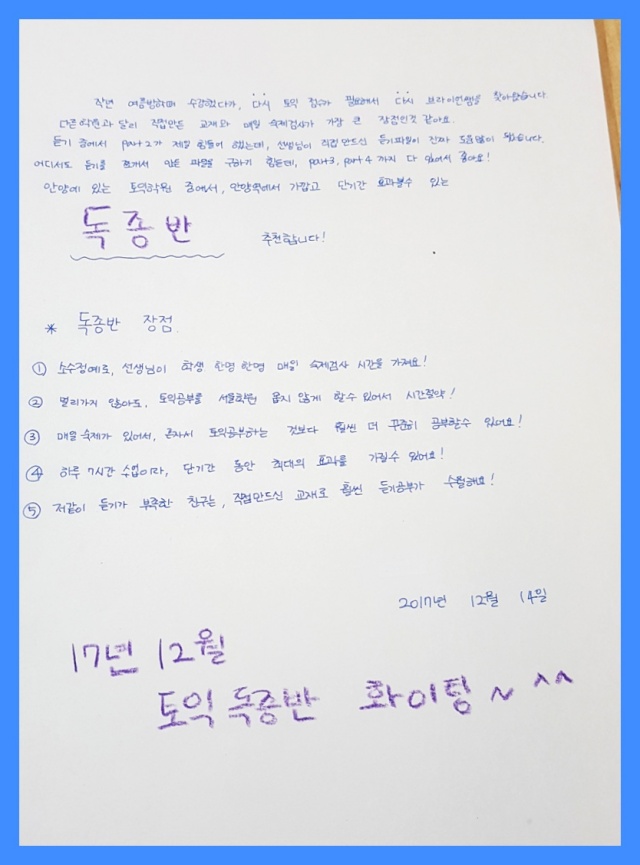 작년 여름방학때 수강했다가, 다시 토익 점수가 필요해서 다시 브라이언쌤을 찾아왔습니다.
다른학원과 달리 직접만든 교재와 매일 숙제검사가 가장 큰 장점인것 같아요.
듣기 중에서 part 2가 제일 힘들어 했는데, 선생님이 직접 만드신 듣기파일이 진짜 도움많이 됐습니다.
어디서도 듣기를 쪼개서 만든 파일을 구하기 힘든데, part3, part 4 까지 다 있어서 좋아요!
안양에 있는 토익학원 중에서, 안양역에서 가깝고 단기간 효과볼수 있는
독종반 추천합니다!
* 독종반 장점.
① 소수정예로, 선생님이 학생 한명 한명 매일 숙제검사 시간을 가져요!
② 멀리가지 않아도, 토익공부를 서울학원 못지 않게 할수 있어서 시간절약!
③ 매일 숙제가 있어서, 혼자서 토익공부하는 것보다 훨씬 더 꾸준히 공부할수 있어요!
④ 하루 7시간 수업이라, 단기간 동안 최대의 효과를 가질수 있어요!
⑤ 저같이 듣기가 부족한 친구는, 직접만드신 교재로 훨씬 듣기공부가 수월해요!
2017년 12월 14일
17년 12월
토익 독종반 화이팅~ ^^